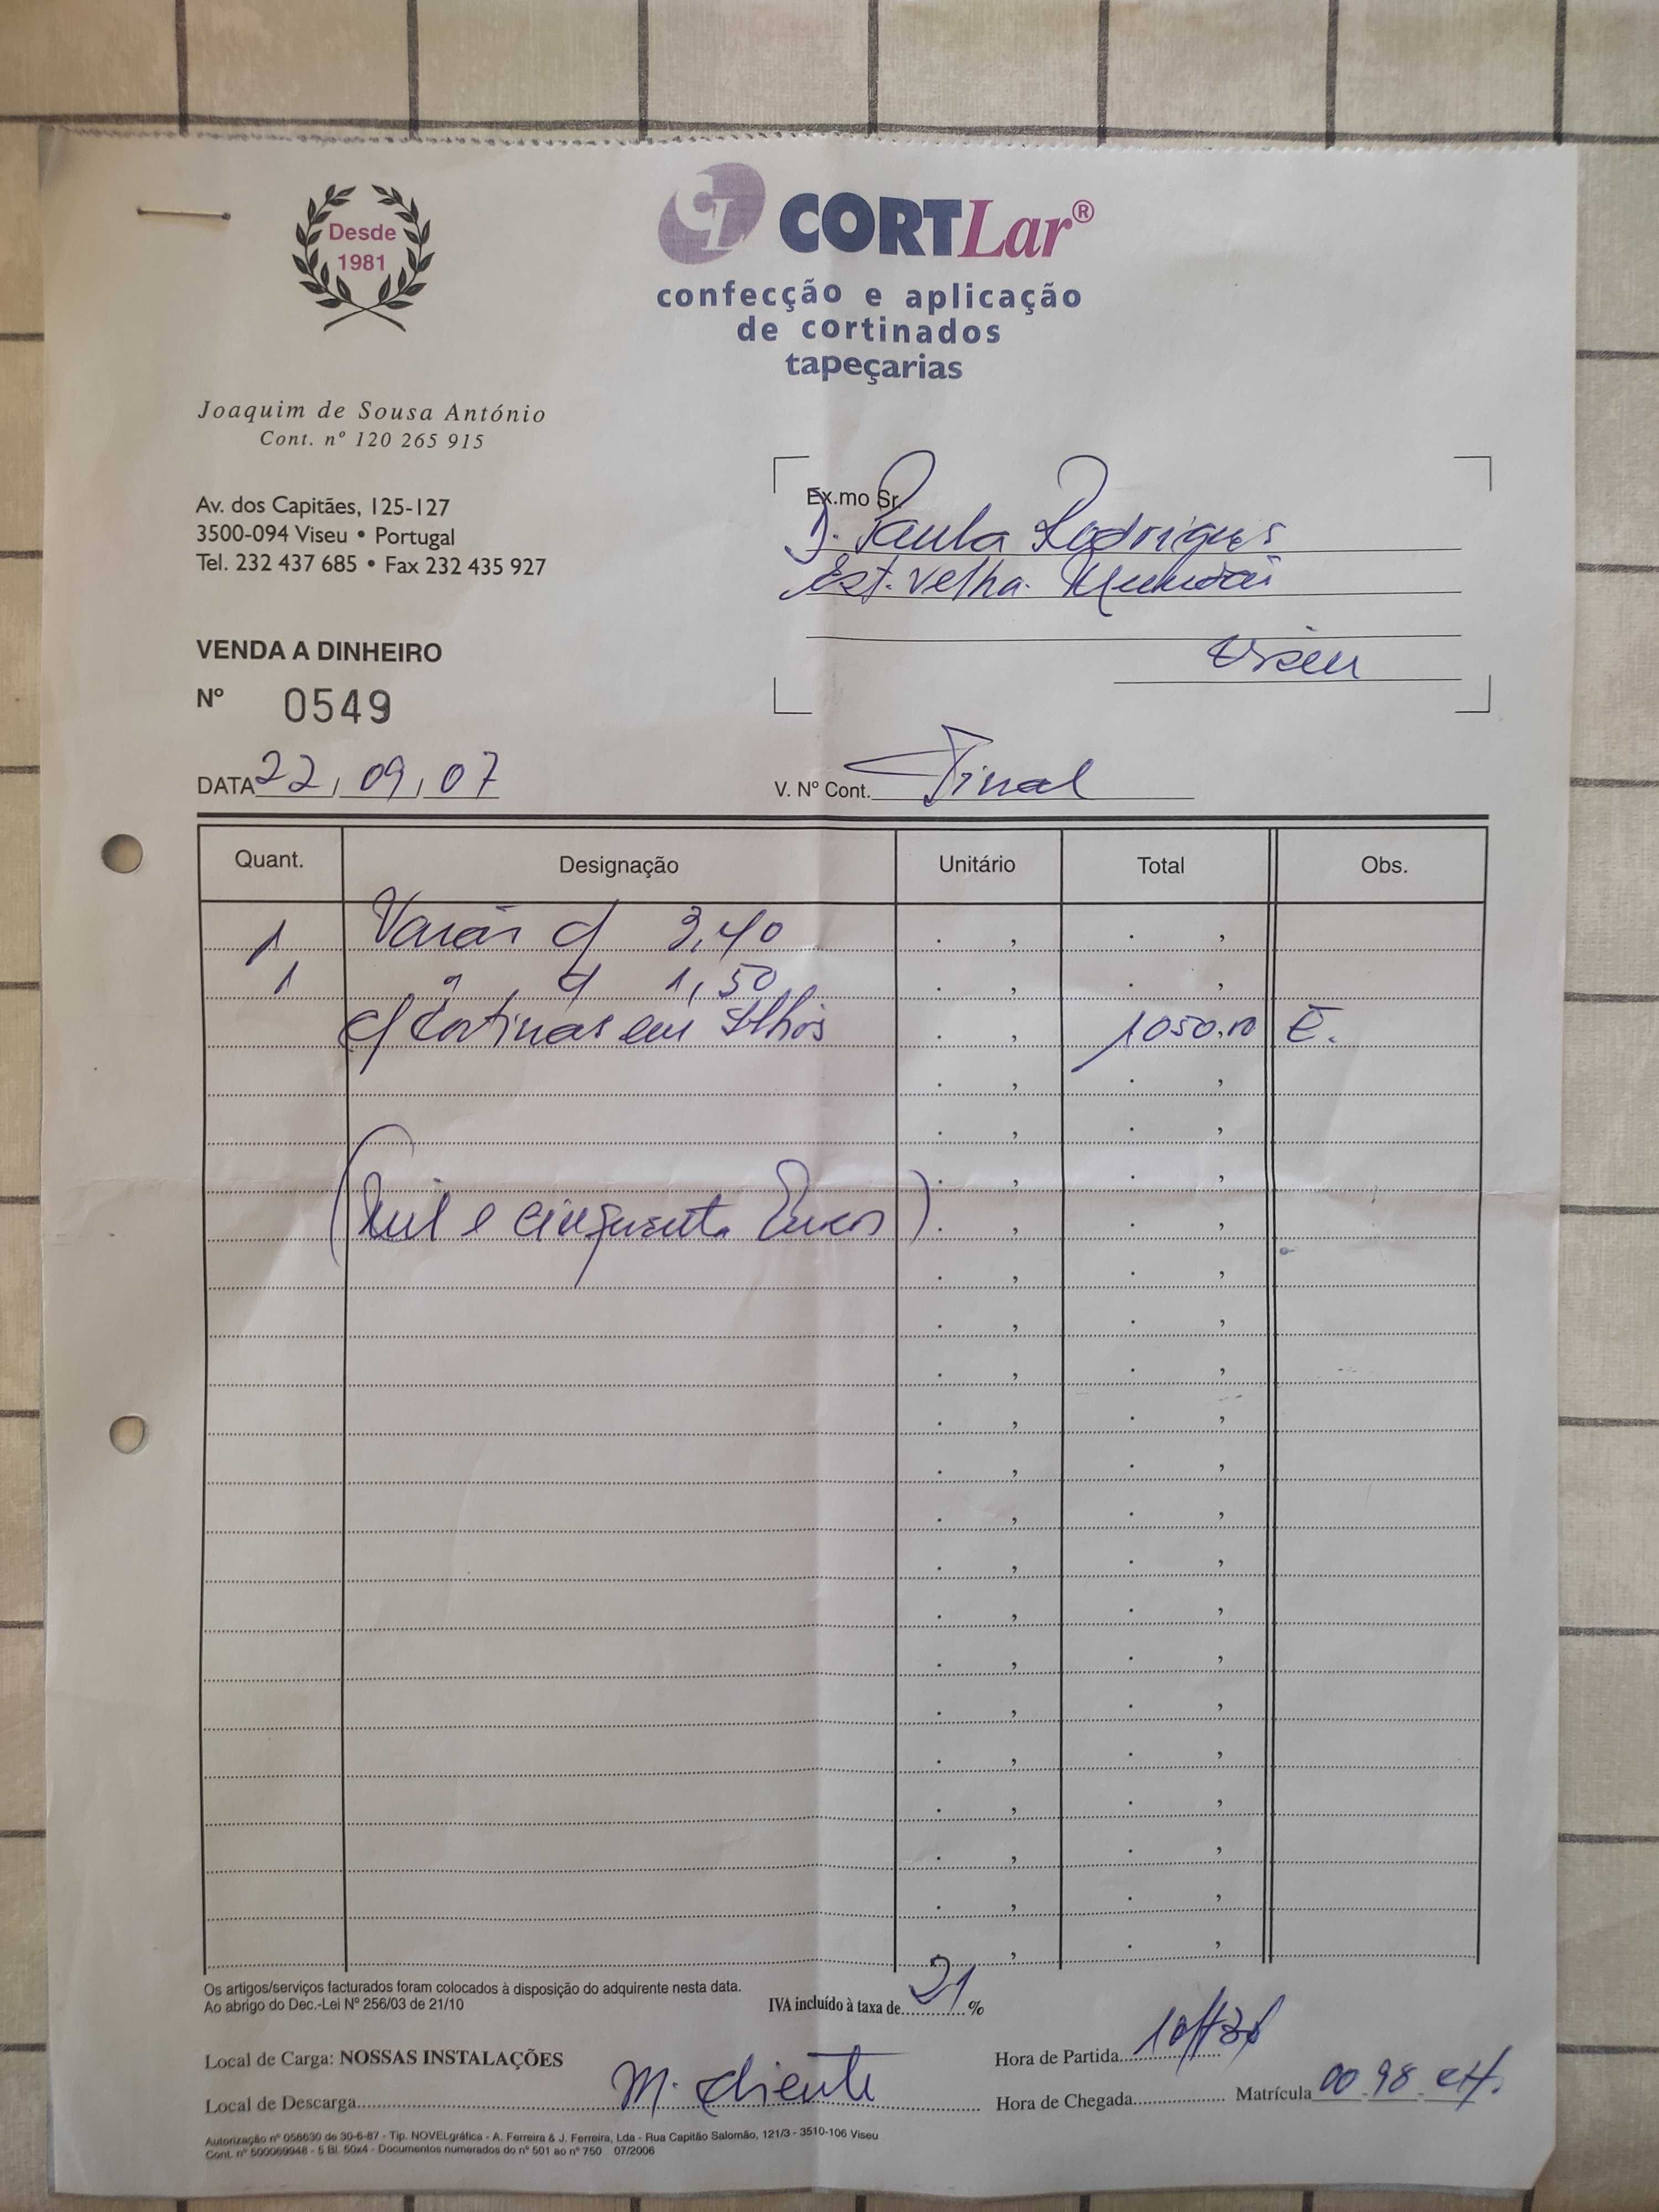 Desde
1981
CL CORTLar®
confecção e aplicação
de cortinados
tapeçarias
Joaquim de Sousa António
Cont. nº 120 265 915
Av. dos Capitães, 125-127
3500-094 Viseu • Portugal
Tel. 232 437 685 • Fax 232 435 927
Ex.mo Sr.
D. Paula Rodrigues
Est. Velha. Mundão
Viseu
VENDA A DINHEIRO
Nº 0549
DATA 22, 09, 07
V. Nº Cont. Final
Quant. Designação Unitário Total Obs.
1 Varão c/ 3,40
1 " c/ 1,50
c/ Cortinas em Ilhós 1050,00 E.
(mil e cinquenta Euros)
Os artigos/serviços facturados foram colocados à disposição do adquirente nesta data.
Ao abrigo do Dec.-Lei Nº 256/03 de 21/10
IVA incluído à taxa de 21 %
Local de Carga: NOSSAS INSTALAÇÕES
Hora de Partida
Local de Descarga M. cliente
Hora de Chegada Matrícula 00 98
Autorização nº 056630 de 30-6-87 - Tip. NOVELgráfica - A. Ferreira & J. Ferreira, Lda - Rua Capitão Salomão, 121/3 - 3510-106 Viseu
Cont. nº 500069948 - 5 Bl. 50x4 - Documentos numerados do nº 501 ao nº 750 07/2006